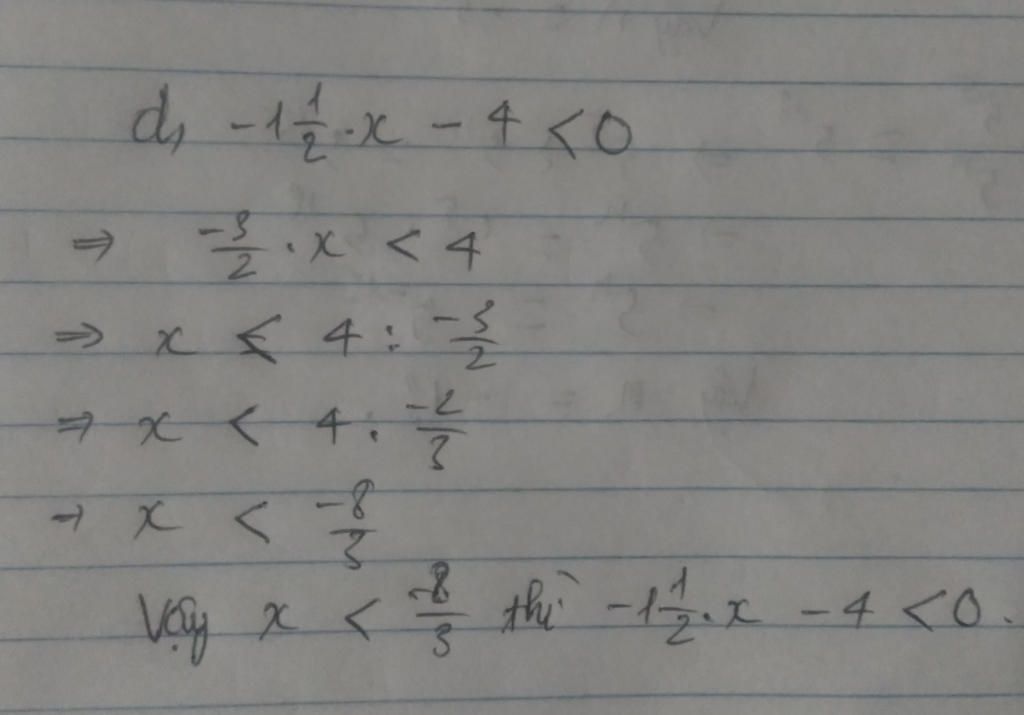 d, -1 1/2 . x - 4 < 0
⇒ -3/2 . x < 4
⇒ x < 4 : -3/2
⇒ x < 4 . -2/3
→ x < -8/3
Vậy x < -8/3 thì -1 1/2 . x - 4 < 0.